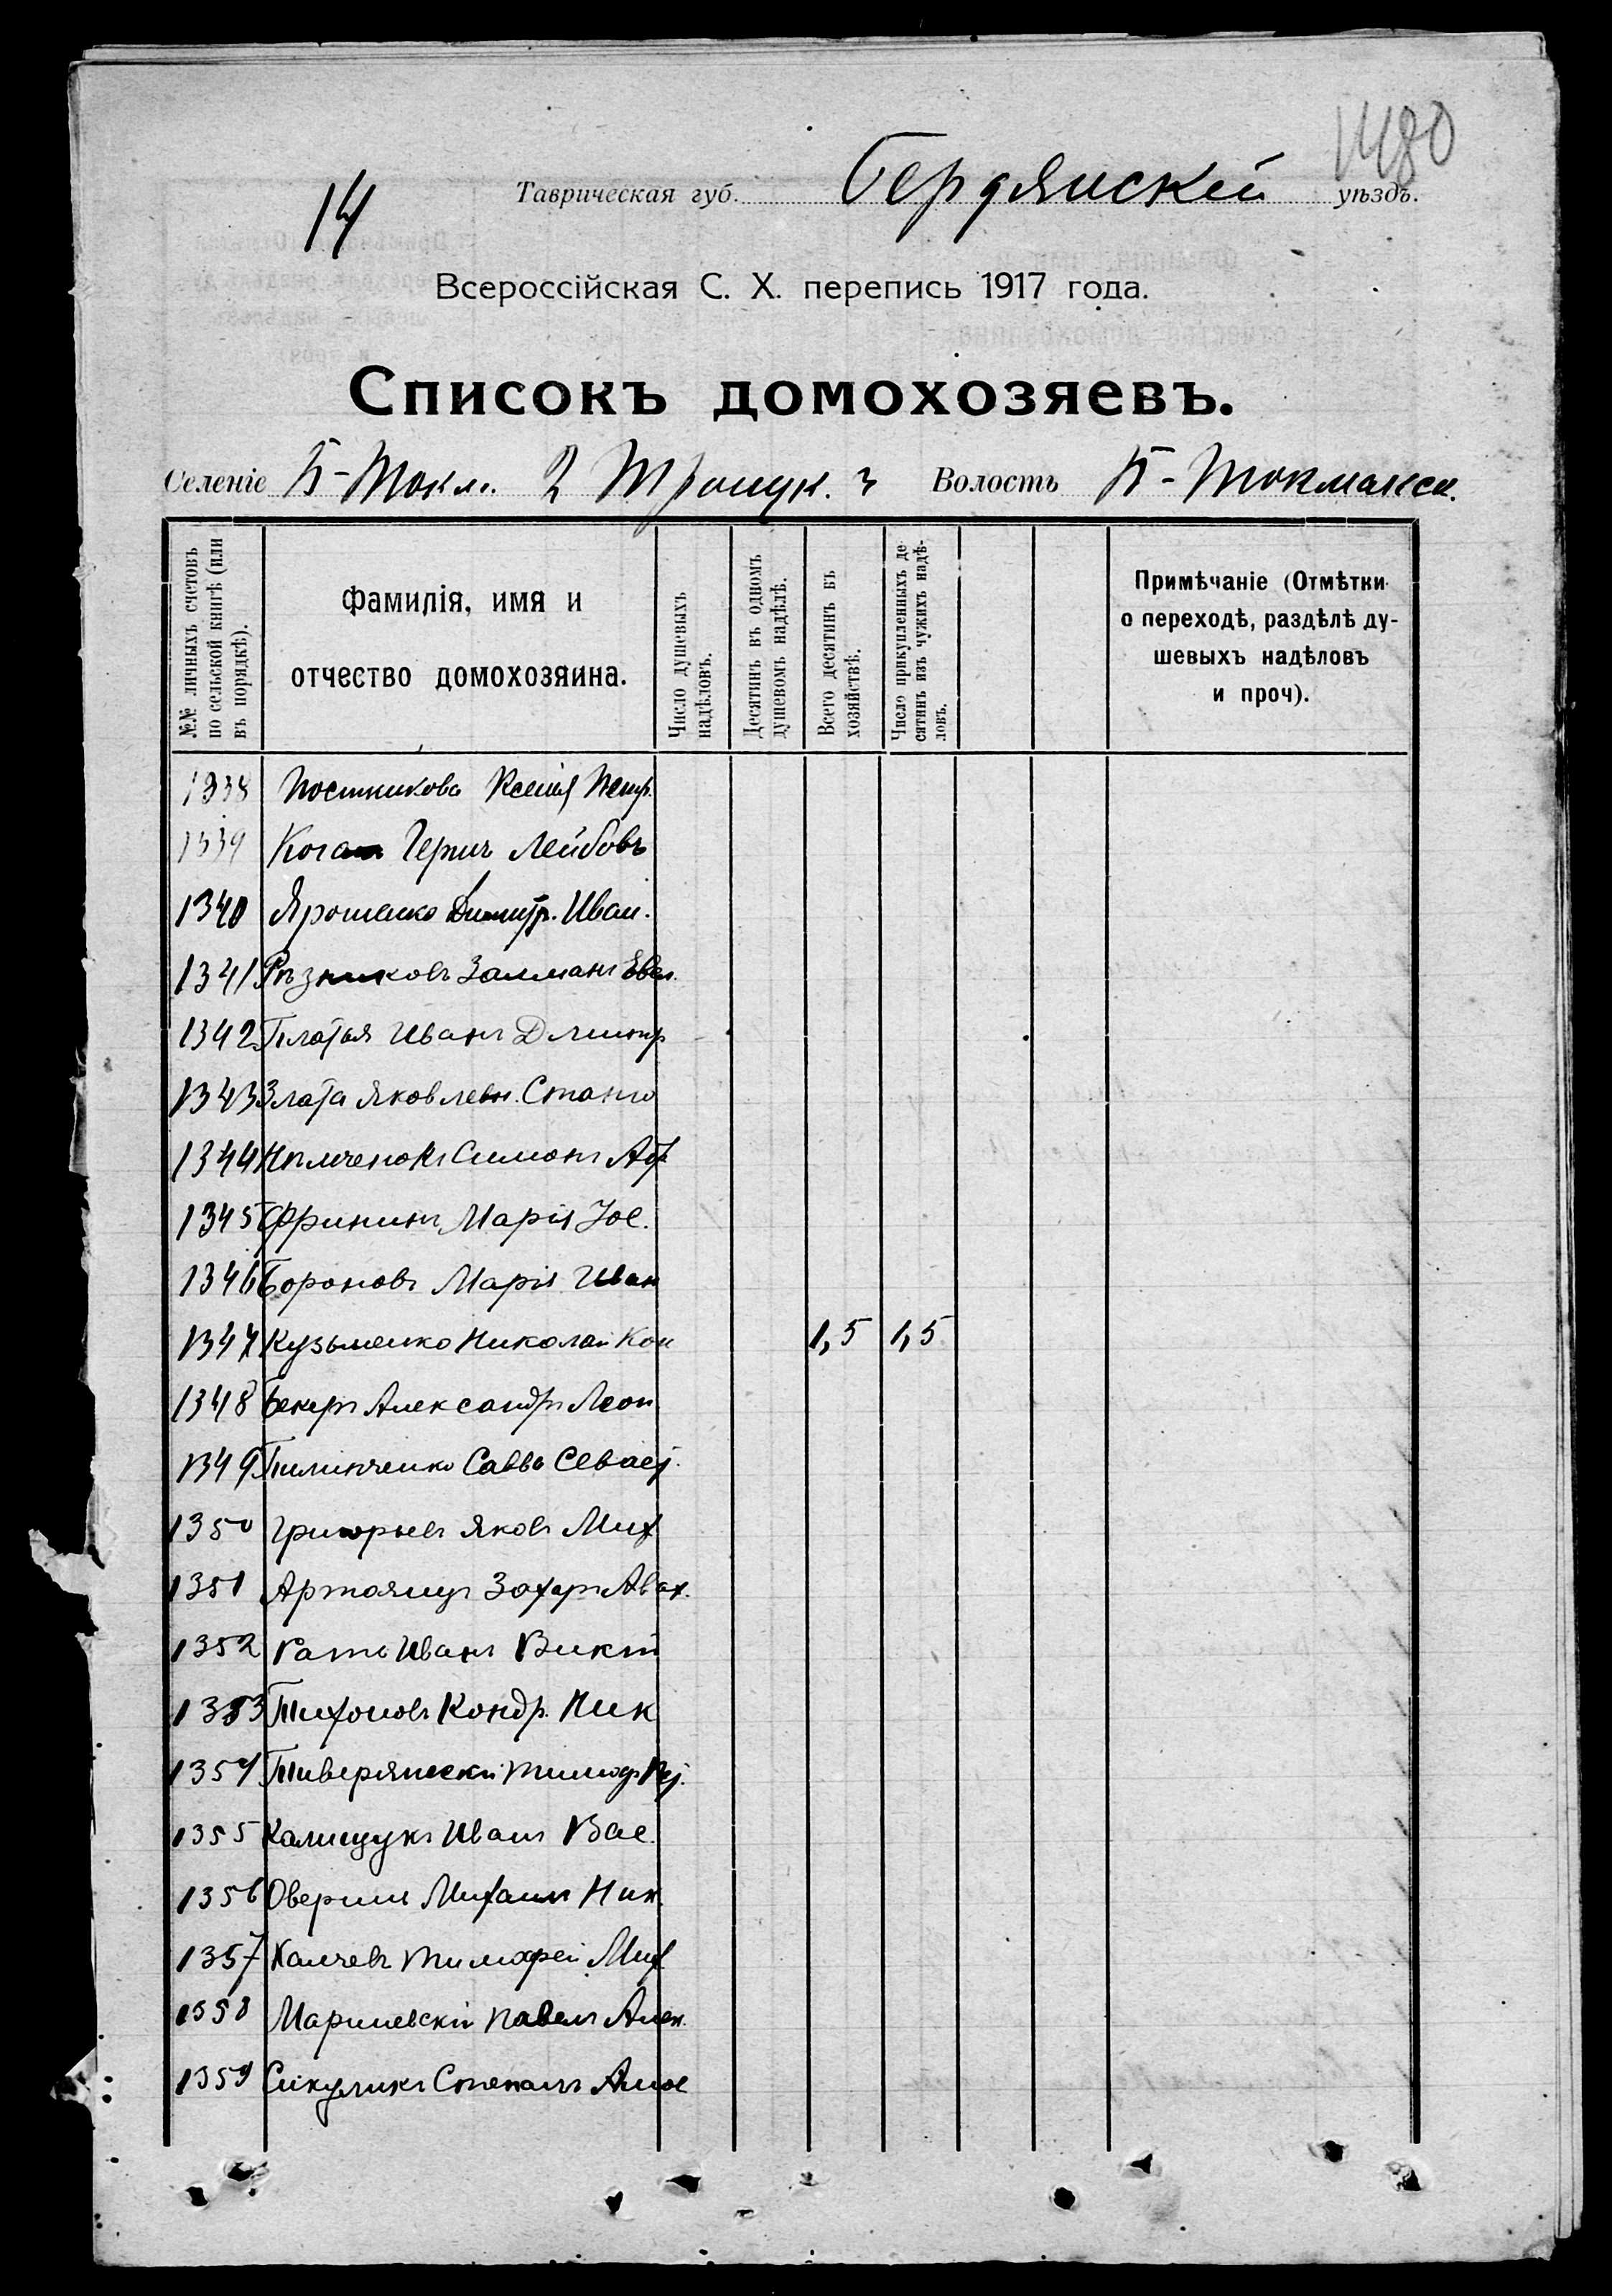 1480
14
Таврическая губ. Бердянскій уѣздъ.
Всероссійская С. Х. перепись 1917 года.
Списокъ домохозяевъ.
Селеніе Б-Токм. 2 Волость Б-Токмакск.
№№ личныхъ счетовъ по сельской книгѣ (или въ порядкѣ).
Фамилія, имя и отчество домохозяина.
Число душевыхъ надѣловъ.
Десятинъ въ одномъ душевомъ надѣлѣ.
Всего десятинъ въ хозяйствѣ.
Число прикупленныхъ десятинъ изъ чужихъ надѣловъ.
Примѣчаніе (Отмѣтки о переходѣ, раздѣлѣ душевыхъ надѣловъ и проч).
1338 Постникова Ксенія Петр.
1339 Коган Герш Лейбовъ
1340 Ярошенко Димитр. Иван.
1341 Рѣзниковъ Залманъ
1342 Платья Иванъ Дмитр
1343 Злата Яковлевн.
1344 Симонъ
1345 Марія Іос.
1346 Бороновъ Марія Иван
1347 Кузьменко Николай Кон 1,5 1,5
1348 Бекеръ Александръ Леон
1349 Савва Севаст.
1350 Григорьевъ Яковъ Мих
1351 Захаръ
1352 Иванъ Викт
1353 Тихоновъ Кондр. Ник
1354 Тивер­янски Тимоф.
1355 Калищукъ Иванъ Вас.
1356 Михаилъ Ник.
1357 Калчевъ Тимофей Мих
1358 Павелъ Алек.
1359 Сикуликъ Степанъ